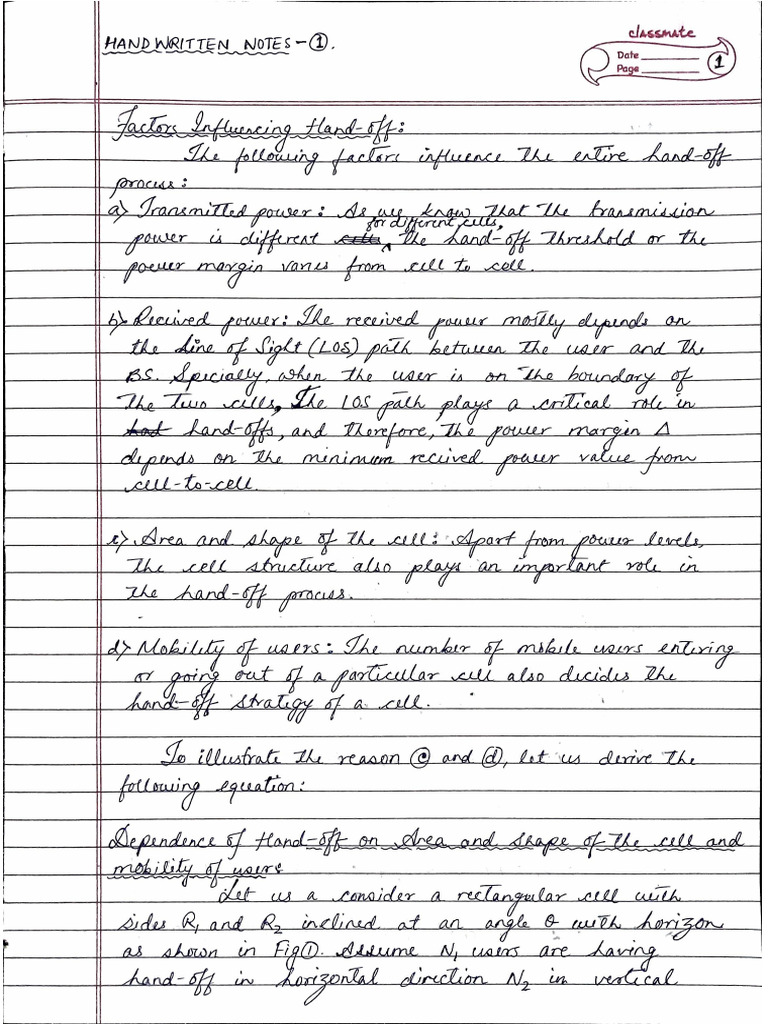 HANDWRITTEN NOTES-①.
classmate
Date
Page
1
Factors Influencing Hand-off:
The following factors influence the entire hand-off
process:
a) Transmitted power: As we know that the transmission
for different cells,
power is different cells, the hand-off threshold or the
power margin varies from cell to cell.
b) Received power: The received power mostly depends on
the Line of Sight (LOS) path between the user and the
BS. Specially, when the user is on the boundary of
the two cells, The LOS path plays a critical role in
hand-offs, and therefore, the power margin Δ
depends on the minimum received power value from
cell-to-cell.
c) Area and shape of the cell: Apart from power levels,
the cell structure also plays an important role in
the hand-off process.
d) Mobility of users: The number of mobile users entering
or going out of a particular cell also decides the
hand-off strategy of a cell.
To illustrate the reason ⓒ and ⓓ, let us derive the
following equation:
Dependence of Hand-off on Area and shape of the cell and
mobility of users
Let us a consider a rectangular cell with
sides R₁ and R₂ inclined at an angle θ with horizon
as shown in Fig①. Assume N₁ users are having
hand-off in horizontal direction N₂ in vertical